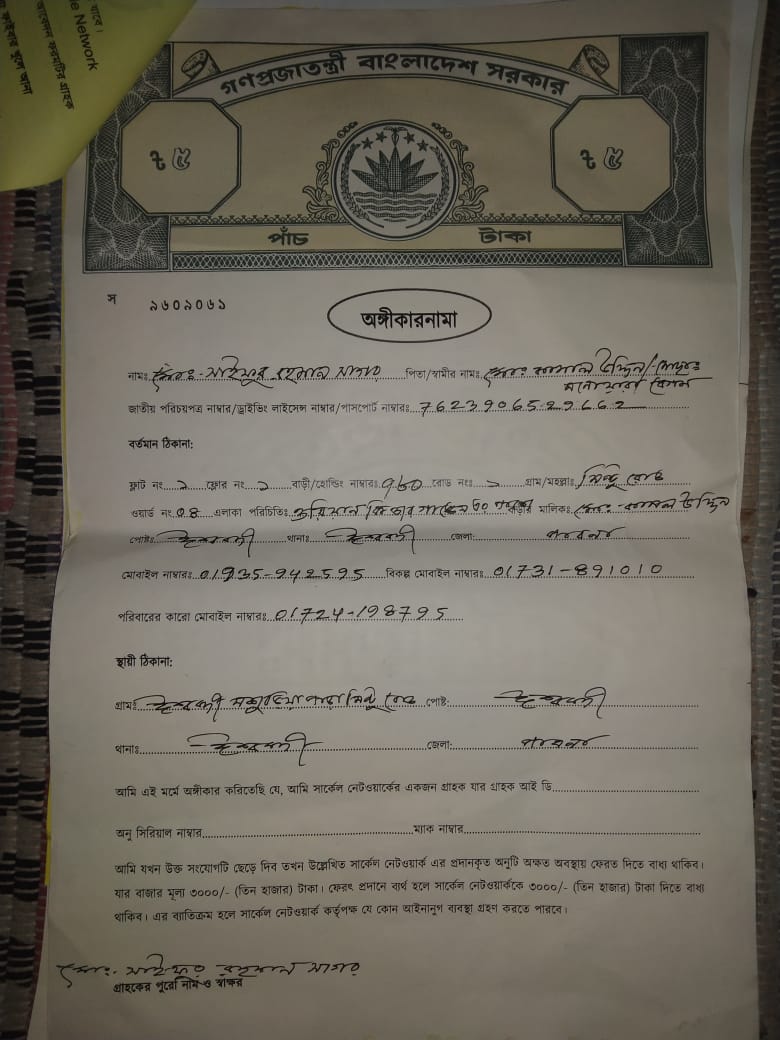 যাবে।
e Network
আবেদন ফরমটির গ্রাহক
গণপ্রজাতন্ত্রী বাংলাদেশ সরকার
৳ ৫
৳ ৫
পাঁচ টাকা
স ৯৬০৯০৬১
অঙ্গীকারনামা
নামঃ মোঃ- সাইফুর রহমান সাগর পিতা/স্বামীর নামঃ মোঃ কামাল উদ্দিন/মোছাঃ
মনোয়ারা বেগম
জাতীয় পরিচয়পত্র নাম্বার/ড্রাইভিং লাইসেন্স নাম্বার/পাসপোর্ট নাম্বারঃ 7623906529662
বর্তমান ঠিকানা:
ফ্লাট নং ২ ফ্লোর নং ১ বাড়ী/হোল্ডিং নাম্বারঃ ৭৬০ রোড নংঃ গ্রাম/মহল্লাঃ পিন্টু রোড
ওয়ার্ড নং 08 এলাকা পরিচিতিঃ বাড়ীর মালিকঃ মোঃ- কামাল উদ্দিন
পোষ্টঃ ঈশ্বরদী থানাঃ ঈশ্বরদী জেলা: পাবনা
মোবাইল নাম্বারঃ 01935-942595 বিকল্প মোবাইল নাম্বারঃ 01731-891010
পরিবারের কারো মোবাইল নাম্বারঃ 01724-198795
স্থায়ী ঠিকানা:
গ্রামঃ ঈশ্বরদী রোড পোষ্ট: ঈশ্বরদী
থানাঃ ঈশ্বরদী জেলা: পাবনা
আমি এই মর্মে অঙ্গীকার করিতেছি যে, আমি সার্কেল নেটওয়ার্কের একজন গ্রাহক যার গ্রাহক আই ডি
অনু সিরিয়াল নাম্বার ম্যাক নাম্বার
আমি যখন উক্ত সংযোগটি ছেড়ে দিব তখন উল্লেখিত সার্কেল নেটওয়ার্ক এর প্রদানকৃত অনুটি অক্ষত অবস্থায় ফেরত দিতে বাধ্য থাকিব।
যার বাজার মূল্য ৩০০০/- (তিন হাজার) টাকা। ফেরৎ প্রদানে ব্যর্থ হলে সার্কেল নেটওয়ার্ককে ৩০০০/- (তিন হাজার) টাকা দিতে বাধ্য
থাকিব। এর ব্যতিক্রম হলে সার্কেল নেটওয়ার্ক কর্তৃপক্ষ যে কোন আইনানুগ ব্যবস্থা গ্রহণ করতে পারবে।
মোঃ- সাইফুর রহমান সাগর
গ্রাহকের পুরো নাম ও স্বাক্ষর